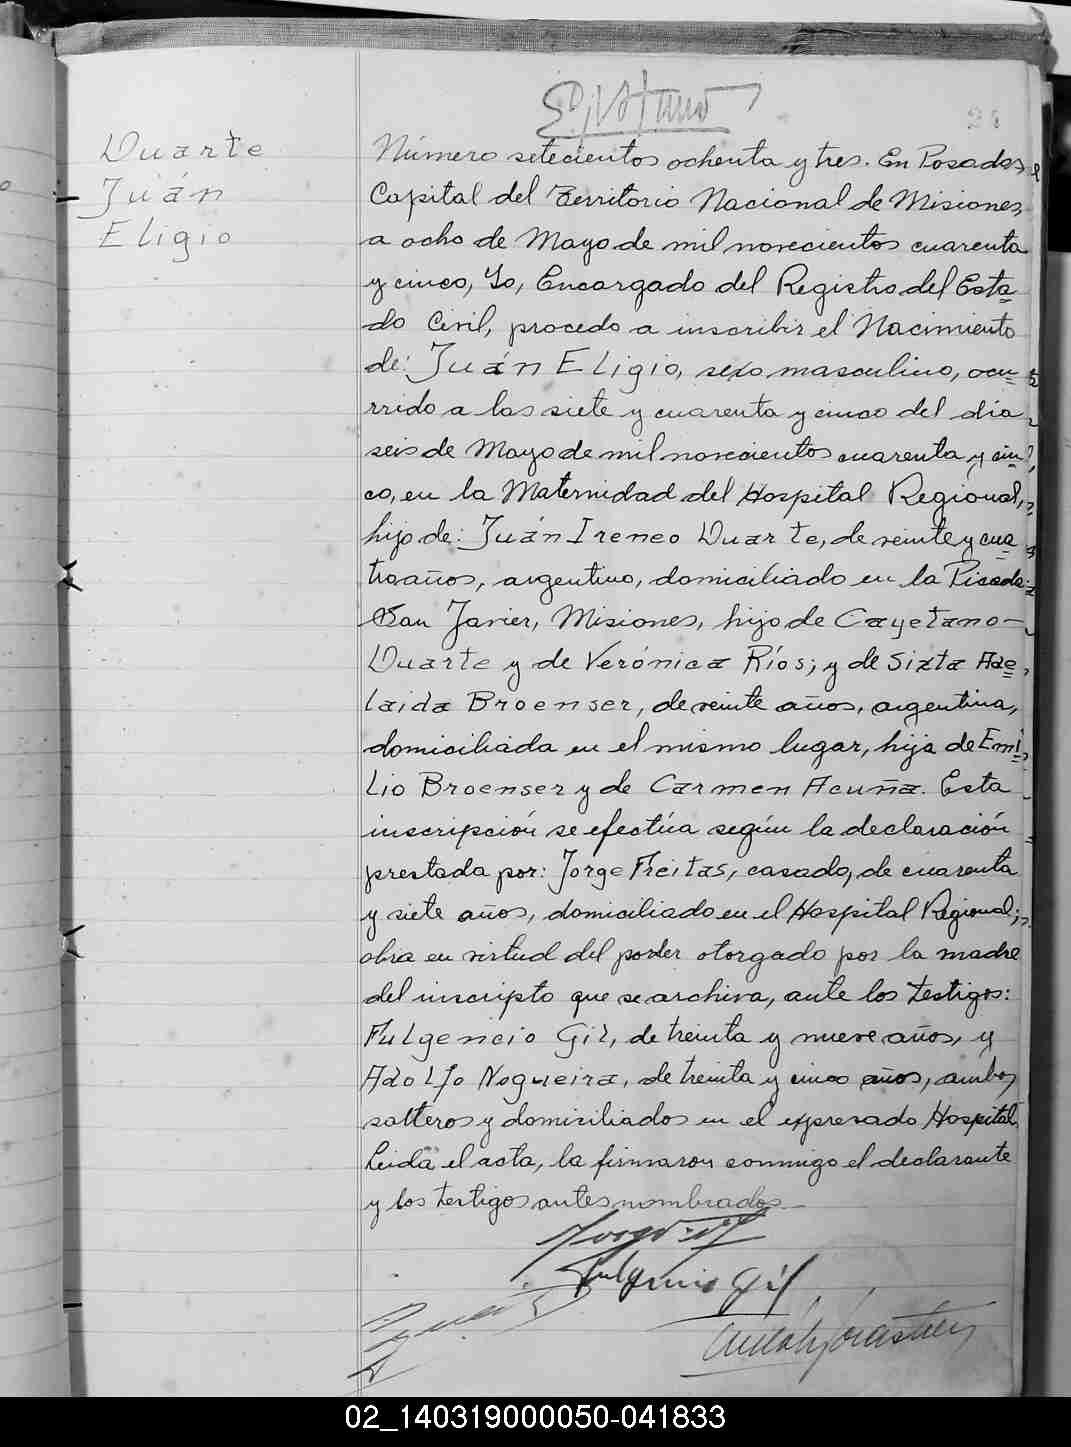 Duarte
Juán
Eligio
Número setecientos ochenta y tres. En Posadas,
Capital del Territorio Nacional de Misiones,
a ocho de Mayo de mil novecientos cuarenta
y cinco, Yo, Encargado del Registro del Esta=
do Civil, procedo a inscribir el Nacimiento
de: Juán Eligio, sexo masculino, ocu=
rrido a las siete y cuarenta y cinco del día
seis de Mayo de mil novecientos cuarenta y cin=
co, en la Maternidad del Hospital Regional,
hijo de: Juán Ireneo Duarte, de veinte y cua=
tro años, argentino, domiciliado en la Picada
San Javier, Misiones, hijo de Cayetano-
Duarte y de Verónica Ríos; y de Sixta Ade=
laida Broenser, de veinte años, argentina,
domiciliada en el mismo lugar, hija de Emi=
lio Broenser y de Carmen Acuña. Esta
inscripción se efectúa según la declaración
prestada por: Jorge Freitas, casado, de cuarenta
y siete años, domiciliado en el Hospital Regional;
obra en virtud del poder otorgado por la madre
del inscripto que se archiva, ante los testigos:
Fulgencio Gil, de treinta y nueve años, y
Adolfo Nogueira, de treinta y cinco años, ambos
solteros y domiciliados en el expresado Hospital.
Leida el acta, la firmaron conmigo el declarante
y los testigos antes nombrados.-
Fulgencio Gil
02_140319000050-041833